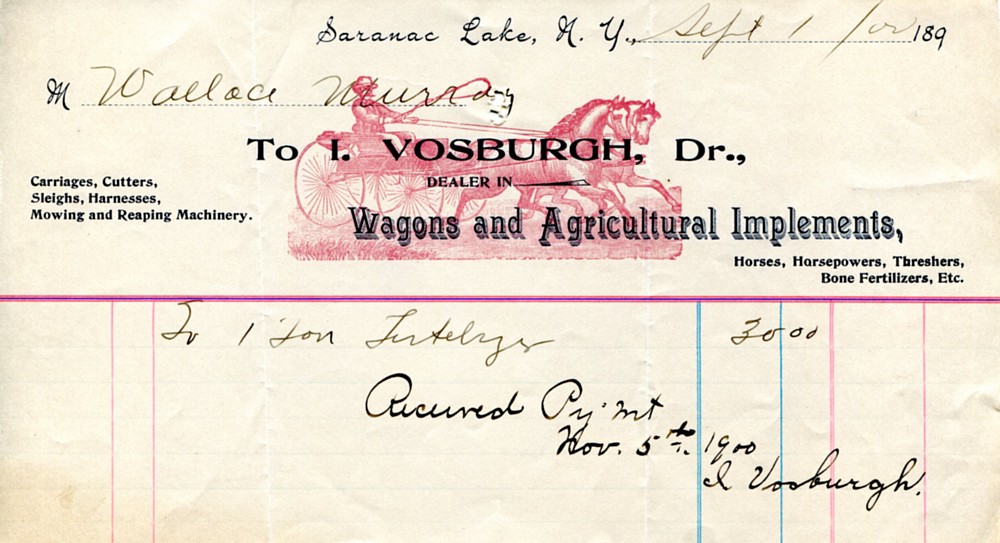 Saranac Lake, N. Y., Sept 1 /00 189
M Wallace Murray
To I. VOSBURGH, Dr.,
DEALER IN
Carriages, Cutters,
Sleighs, Harnesses,
Mowing and Reaping Machinery.
Wagons and Agricultural Implements,
Horses, Horsepowers, Threshers,
Bone Fertilizers, Etc.
To 1 Ton Fertelyzer 30 00
Received Py'mt
Nov. 5th. 1900
I Vosburgh.